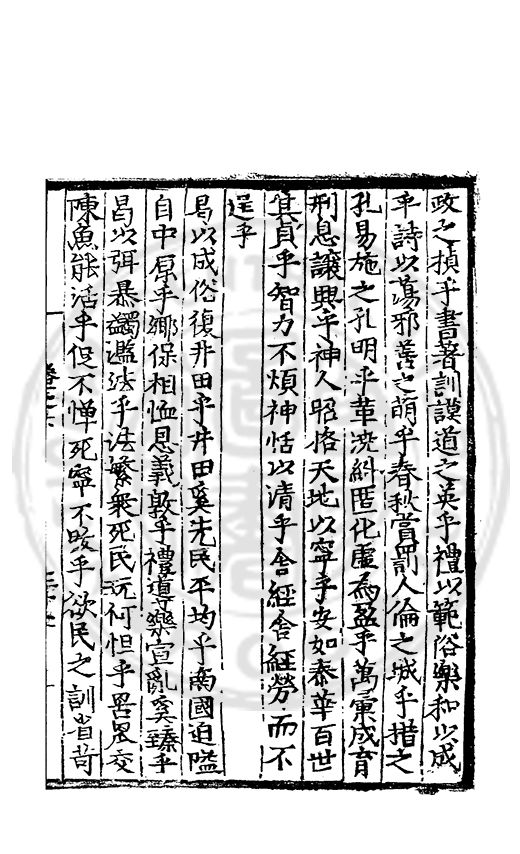 政之楨乎書著訓謨道之英乎禮以範俗樂和以成
乎詩以蕩邪善之萌乎春秋賞罰人倫之城乎措之
孔易施之孔明乎革澆斜匿化虛為盈乎萬彙咸育
刑息讓興乎神人昭格天地以寧乎安如泰華百世
其貞乎智力不煩神恬以清乎舍經舍經勞而不
逞乎
曷以成俗復井田乎井田奚先民平均乎啇國迫隘
自中原乎鄉保相恤恩義敦乎禮導樂宣亂奚臻乎
曷以弭暴蠲濫法乎法繁衆死民玩何怛乎罟罛交
陳魚能活乎促不憚死寧不畋乎欲民之訓省苛